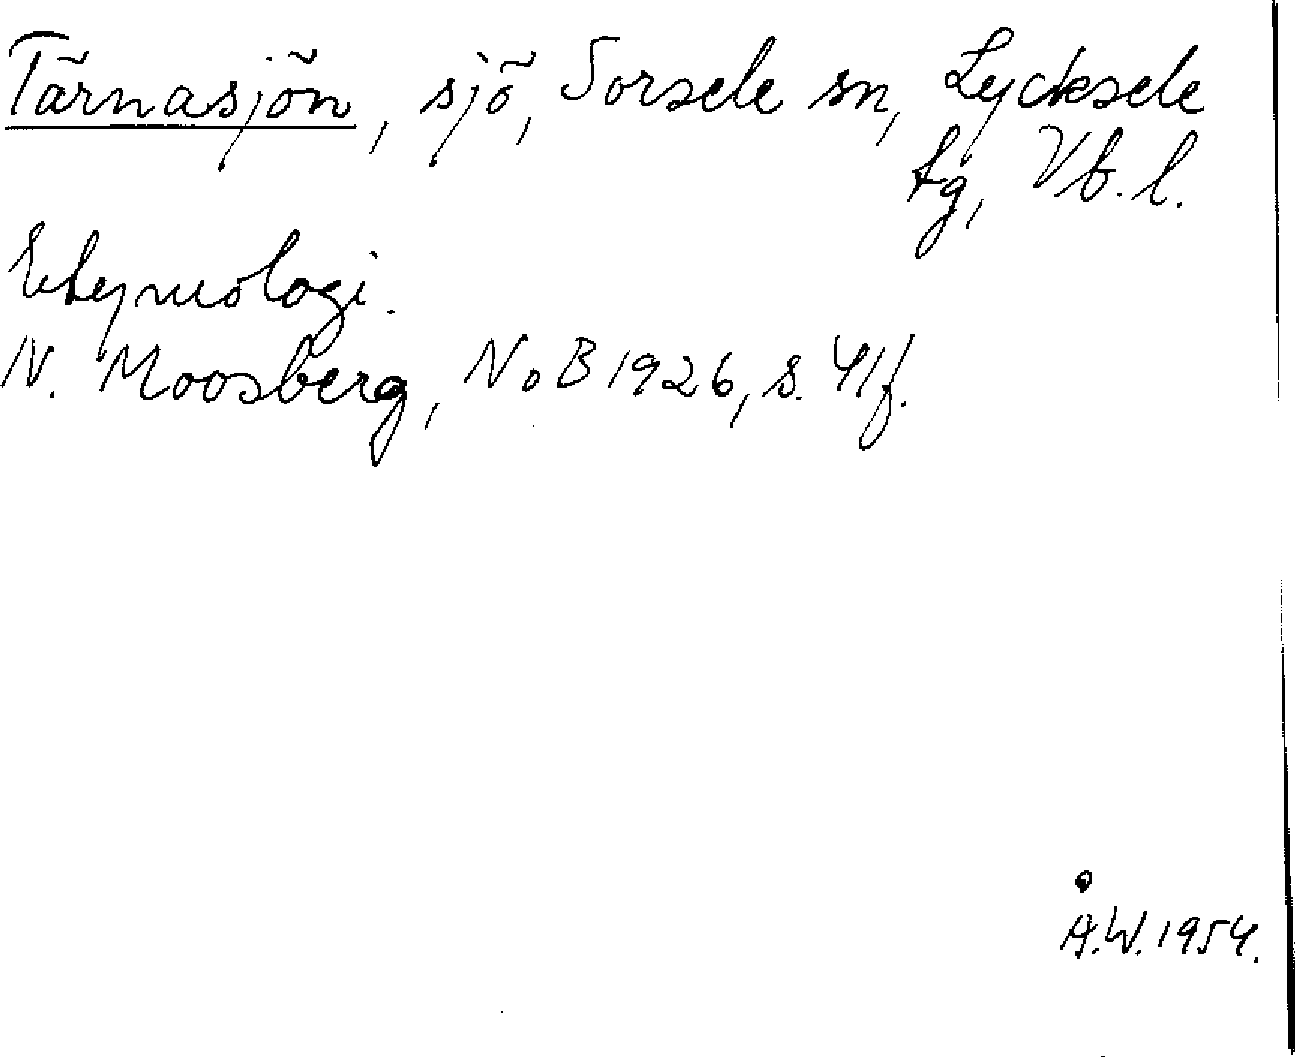 Tärnasjön, sjö, Sorsele sn, Lycksele
tg, Vb. l.
Etymologi.
N. Moosberg, NoB 1926, s. 41f.
Å.W. 1954.